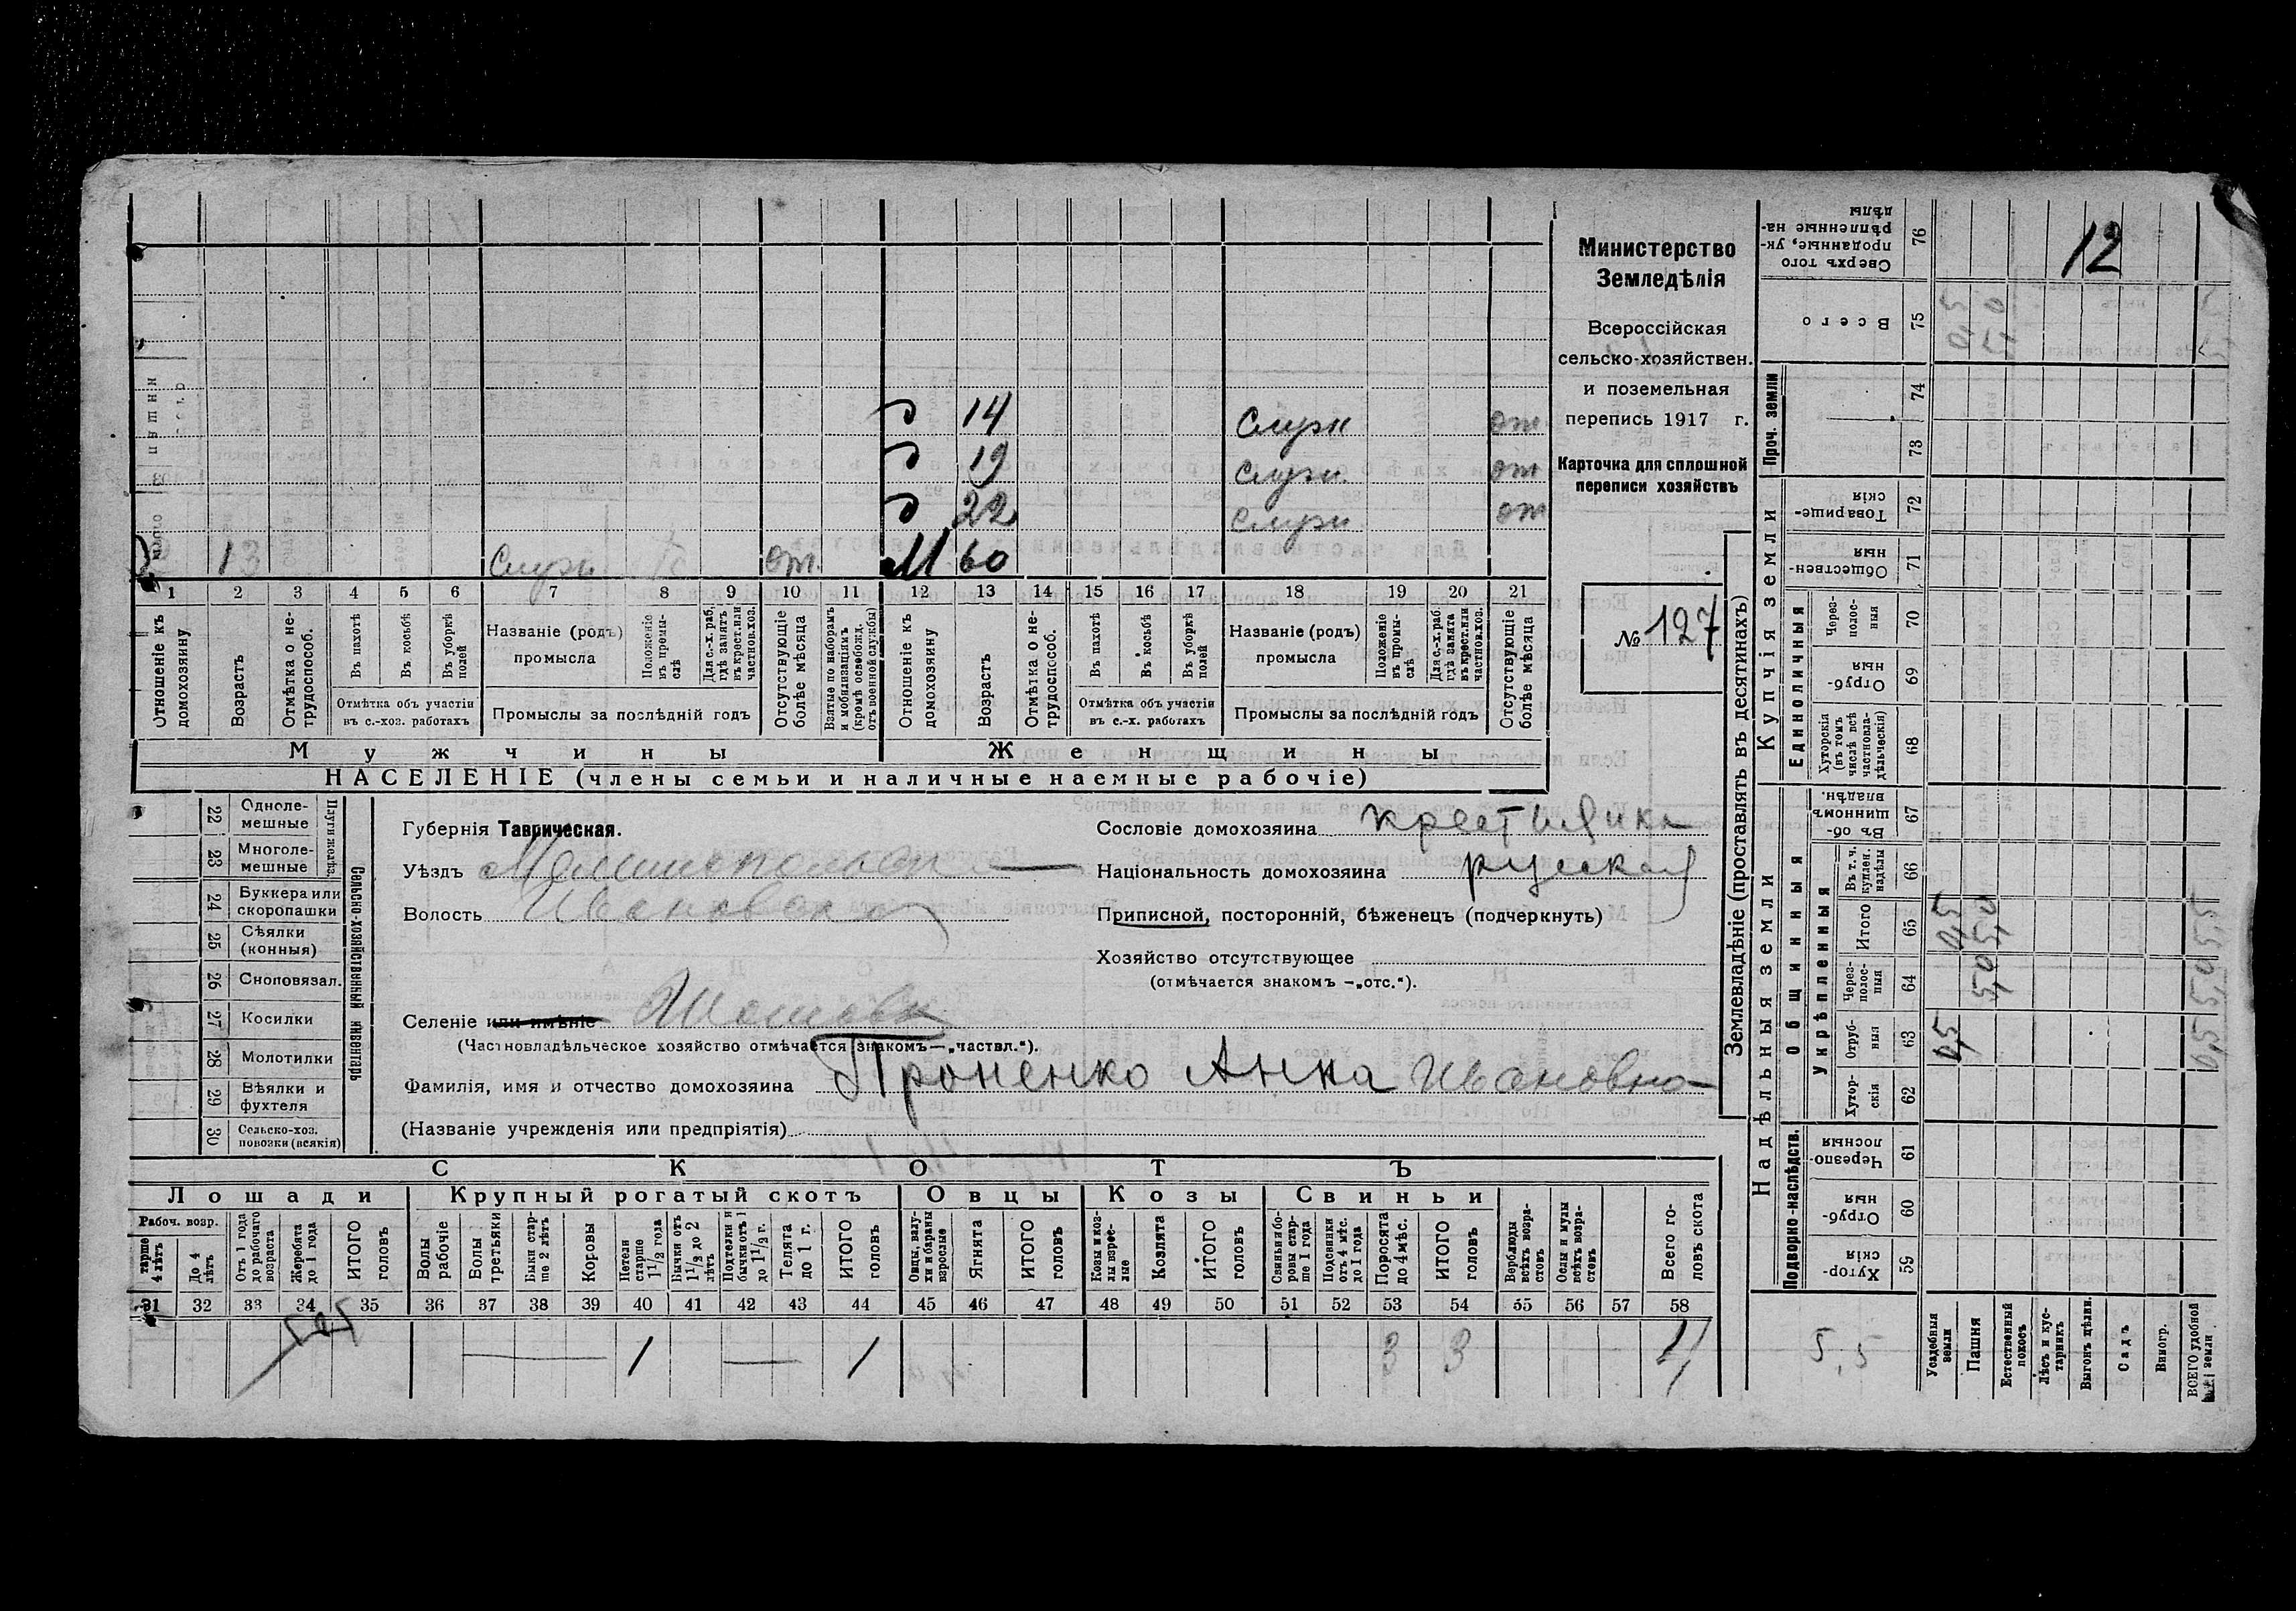 14 Служ от
19 Служ. от
22 Служ от
13 Служ от. М 60
1 2 3 4 5 6 7 8 9 10 11 12 13 14 15 16 17 18 19 20 21
Отношеніе къ домохозяину
Возрастъ
Отмѣтка о не-трудоспособ.
Въ пахотѣ
Въ косьбѣ
Въ уборкѣ полей
Отмѣтка объ участіи въ с.-хоз. работахъ
Названіе (родъ) промысла
Положеніе въ промы-слѣ
Для с.-х. раб, гдѣ занятъ въ крест.или частнов.хоз.
Промыслы за послѣдній годъ
Отсутствующіе болѣе мѣсяца
Взятые по наборамъ и мобилизаціямъ (кромѣ освобожд. отъ военной службы)
Отношеніе къ домохозяину
Возрастъ
Отмѣтка о не-трудоспособ.
Въ пахотѣ
Въ косьбѣ
Въ уборкѣ полей
Отмѣтка объ участіи въ с.-х. работахъ
Названіе (родъ) промысла
Положеніе въ промы-слѣ
Для с.-х. раб. гдѣ занята въ крест.или частнов.хоз.
Промыслы за послѣдній годъ
Отсутствующіе болѣе мѣсяца
Мужчины Женщины
НАСЕЛЕНІЕ (члены семьи и наличные наемные рабочіе)
Министерство
Земледѣлія
Всероссійская
сельско-хозяйствен.
и поземельная
перепись 1917 г.
Карточка для сплошной
переписи хозяйствъ
№ 127
22 Одноле-мешные
23 Многоле-мешные
Плуги желѣз.
24 Буккера или скоропашки
25 Сѣялки (конныя)
26 Сноповязал.
27 Косилки
28 Молотилки
29 Вѣялки и фухтеля
30 Сельско-хоз. повозки (всякія)
Сельско-хозяйственный инвентарь
Губернія Таврическая.
Уѣздъ
Волость Ивановская
Селеніе или имѣніе
(Частновладѣльческое хозяйство отмѣчается знакомъ—„частвл.“).
Фамилія, имя и отчество домохозяина Проненко Анна Ивановна
(Названіе учрежденія или предпріятія)
Сословіе домохозяина
Національность домохозяина руская
Приписной, посторонній, бѣженецъ (подчеркнуть)
Хозяйство отсутствующее
(отмѣчается знакомъ -„отс.“).
СКОТЪ
Лошади Крупный рогатый скотъ Овцы Козы Свиньи
Рабоч. возр.
тарше 4 лѣтъ
До 4 лѣтъ
Отъ 1 года до рабочаго возраста
Жеребята до 1 года
ИТОГО головъ
Волы рабочіе
Волы третьяки
Быки стар-ше 2 лѣтъ
Коровы
Нетели старше 1 1/2 года
Бычки отъ 1 1/2 до 2 лѣтъ
Подтелки и бычки отъ 1 до 1 1/2 г.
Телята до 1 г.
ИТОГО головъ
Овцы, валу-хи и бараны взрослые
Ягнята
ИТОГО головъ
Козы и коз-лы взрос-лые
Козлята
ИТОГО головъ
Свиньи и бо-ровы стар-ше 1 года
Подсвинки отъ 4 мѣс. до 1 года
Поросята до 4 мѣс.
ИТОГО головъ
Верблюды всѣхъ возра-стовъ
Ослы и мулы всѣхъ возра-стовъ
Всего го-ловъ скота
31 32 33 34 35 36 37 38 39 40 41 42 43 44 45 46 47 48 49 50 51 52 53 54 55 56 57 58
1 1 3 3 4
Землевладѣніе (проставлять въ десятинахъ)
Купчія земли
Надѣльныя земли
Сверхъ того проданные, ук-рѣпленные на-дѣлы 76 12
Всего 75 0,5 5,0
Проч. земли 74 73
Товарище-скія 72
Обществен-ныя 71
Единоличныя
Через-полос-ныя 70
Отруб-ныя 69
Хуторскія (въ томъ числѣ всѣ частновла-дѣльческія) 68
Общинныя
Въ об-щинномъ владѣн. 67
Укрѣпленныя
Въ т. ч. куплен. надѣлы 66
Итого 65 0,5 5,0 5,5
Через-полос-ныя 64 5,0 5,0
Отруб-ныя 63 0,5 0,5
Хутор-скія 62
Подворно-наслѣдств.
Черезпо-лосныя 61
Отруб-ныя 60
Хутор-скія 59
5,5
Усадебныя земли
Пашня
Естественный покосъ
Лѣсъ и кус-тарникъ
Выгонъ цѣлин.
Садъ
Виногр.
ВСЕГО удобной земли